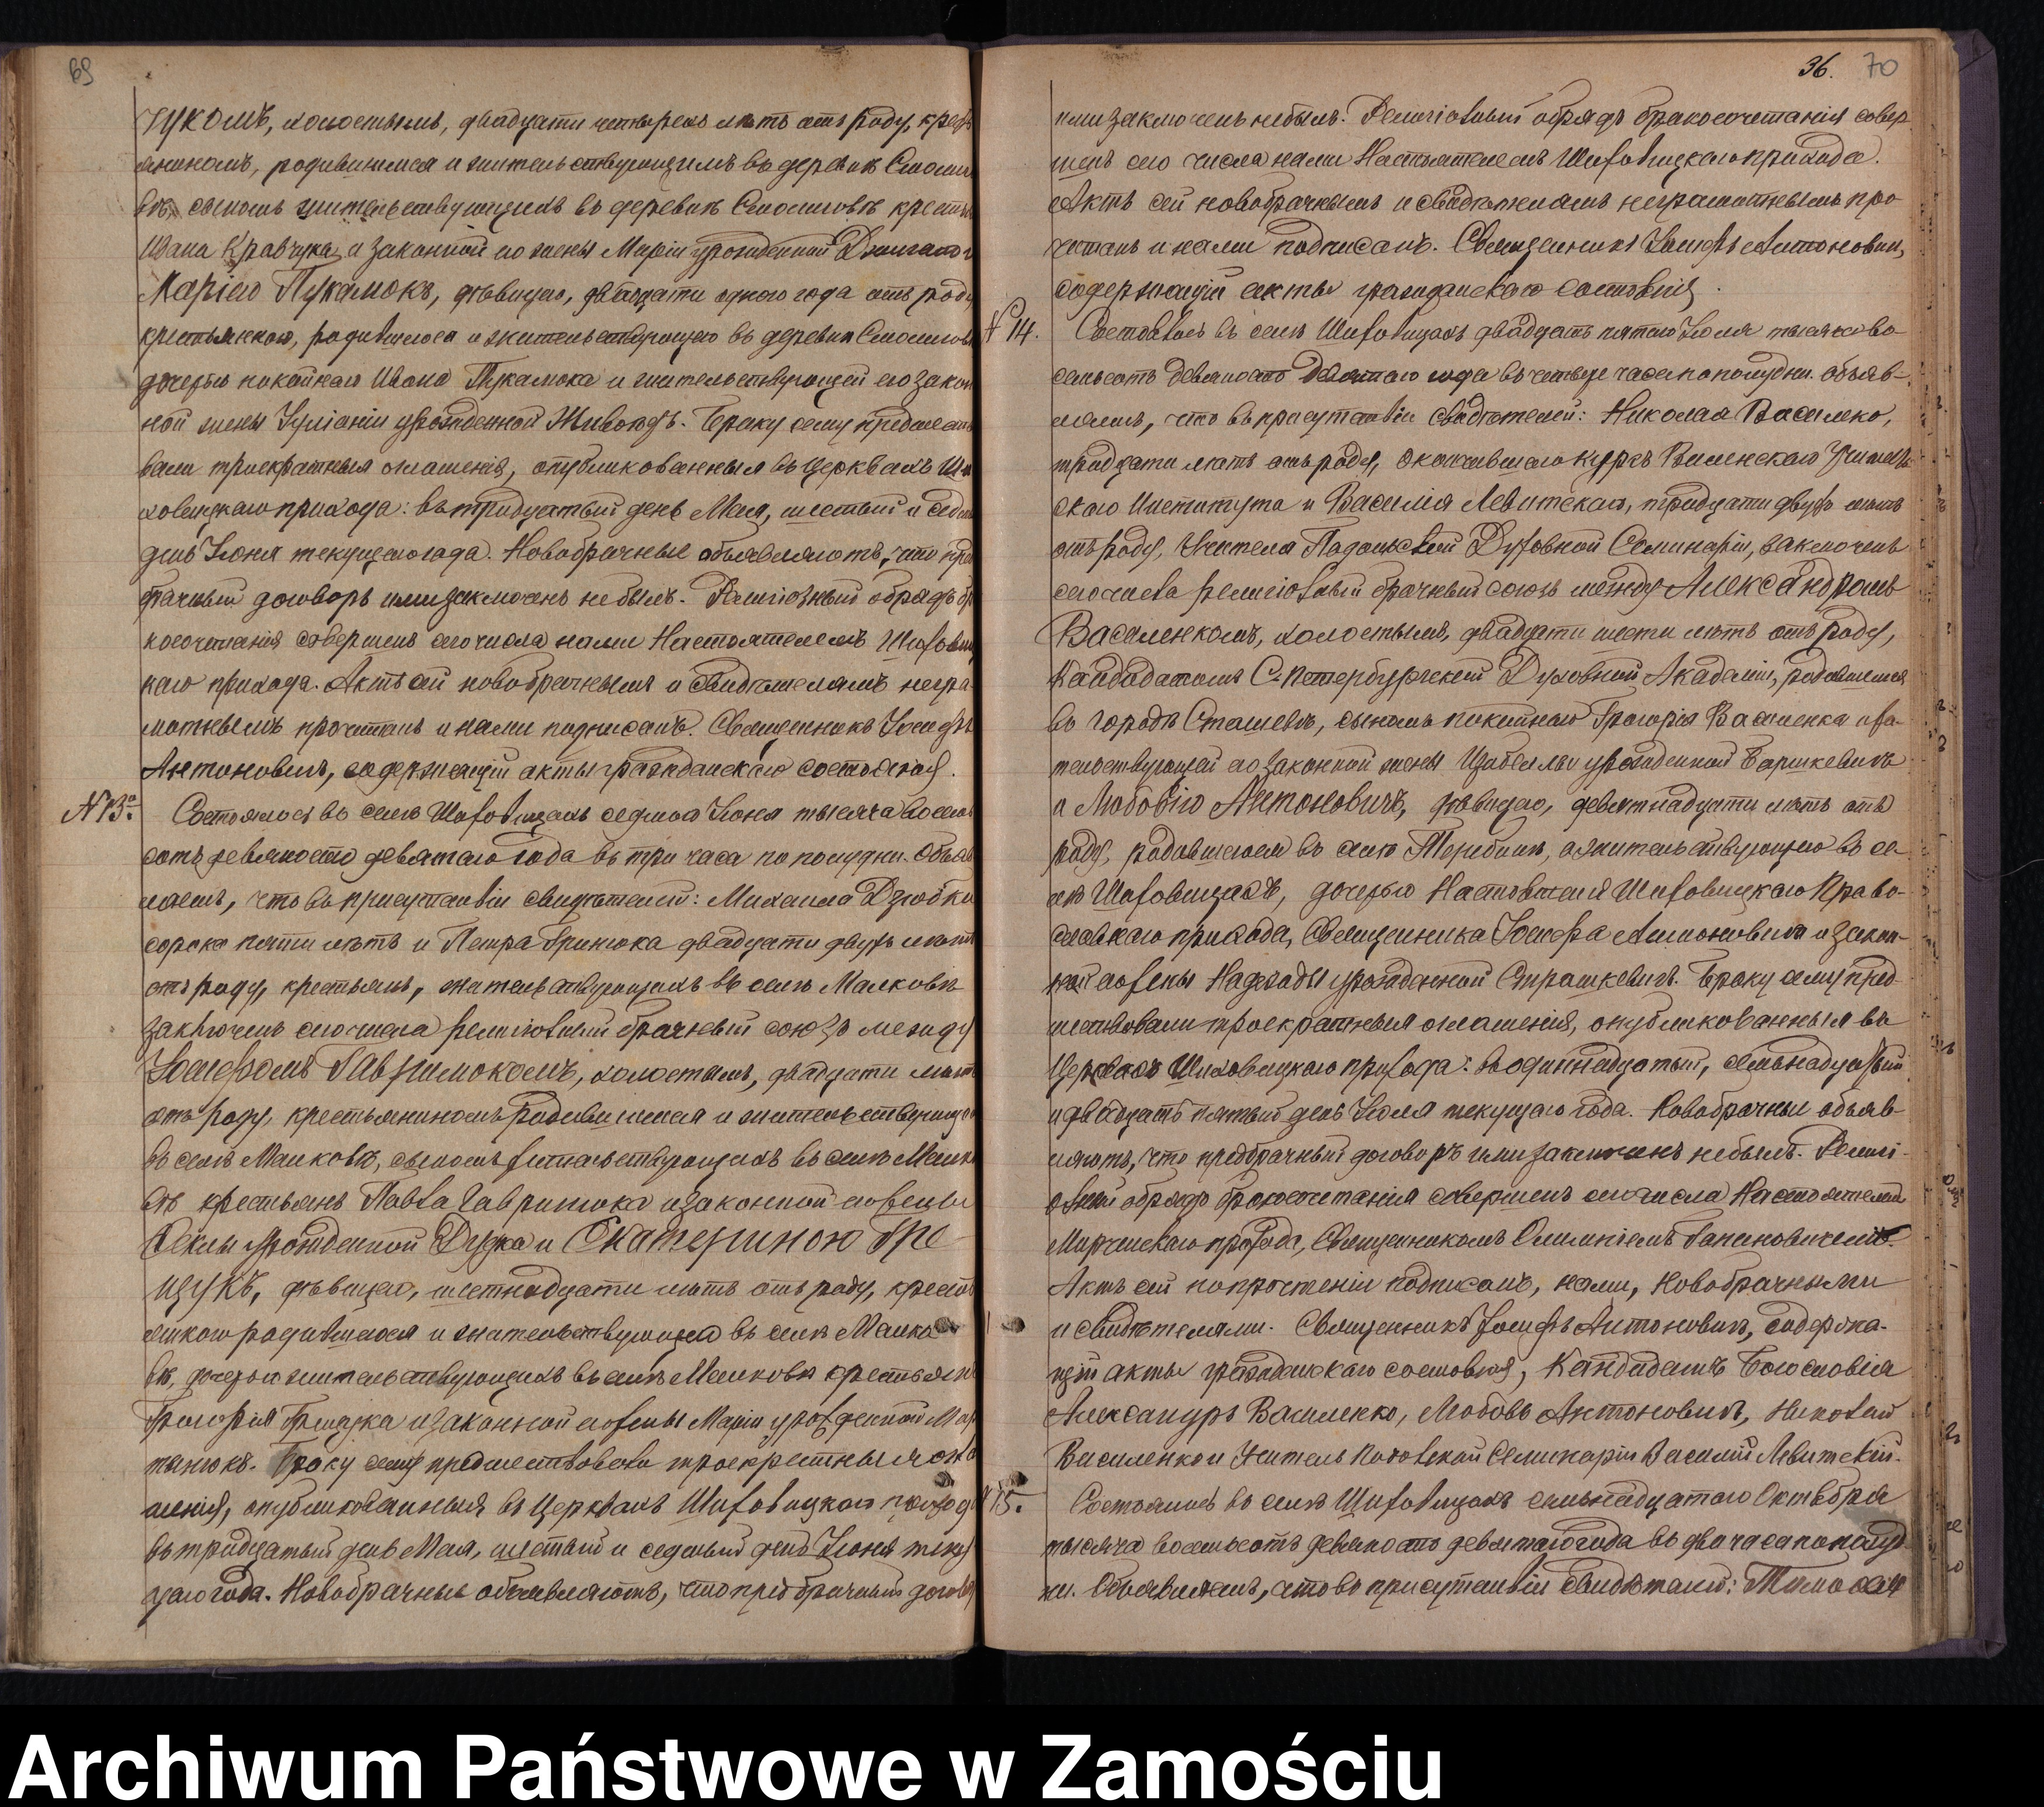 69
чукомъ, холостымъ, двадцати четырехъ лѣтъ отъ роду, кресть
яниномъ, родившимся и жительствующимъ въ деревнѣ
сыномъ жительствующихъ въ деревнѣ крестьянъ
Ивана Кравчука и законной его жены Маріи урожденной
Маріею Пукалюкъ, дѣвицею, двадцати одного года отъ роду
крестьянкою, родившеюся и жительствующею въ деревнѣ
дочерью покойнаго Ивана Пукалюка и жительствующей его закон
ной жены Іуліаніи урожденной Браку сему предшество
вали троекратныя оглашенія, опубликованныя въ церквахъ Ши
ховицкаго прихода: въ тридцатый день Мая, шестый и седь
день Іюня текущаго года. Новобрачные объявляютъ, что пред
брачный договоръ ими заключенъ небылъ. Религіозный обрядъ бра
косочетанія совершенъ сего числа нами Настоятелемъ Шиховиц
каго прихода. Актъ сей новобрачнымъ и свидѣтелямъ негра
мотнымъ прочитанъ и нами подписанъ. Священникъ Іосифъ
Антоновичъ, содержащій акты гражданскаго состоянія.
№ 13. Состоялось въ селѣ Шиховицахъ седмого Іюня тысяча восемь
сотъ девяносто девятаго года въ три часа по полудни. Объяв
ляемъ, что въ присутствіи свидѣтелей: Михаила Дзюбки
сорока пяти лѣтъ и Петра Гринюка двадцати двухъ лѣтъ
отъ роду, крестьянъ, жительствующихъ въ селѣ Малковѣ
заключенъ сего числа религіозный брачный союзъ между
Іосифомъ Гаврилюкомъ, холостымъ, двадцати лѣтъ
отъ роду, крестьяниномъ родившимся и жительствующимъ
въ селѣ Малковѣ, сыномъ жительствующихъ въ селѣ Малко
вѣ крестьянъ Павла Гаврилюка и законной его жены
Феклы урожденной Дудка и Екатериною Гре
щукъ, дѣвицею, шестнадцати лѣтъ отъ роду, кресть
янкою родившеюся и жительствующею въ селѣ Малко
вѣ, дочерью жительствующихъ въ селѣ Малковѣ крестьянъ
Григорія Грещука и законной его жены Маріи урожденной Мар
тынюкъ. Браку сему предшествовали троекратныя огла
шенія, опубликованныя въ церквахъ Шиховицкаго прихода
въ тридцатый день Мая, шестый и седмый день Іюня теку
щаго года. Новобрачные объявляютъ, что предбрачный договоръ
36. 70
ими заключенъ небылъ. Религіозный обрядъ бракосочетанія совер
шенъ сего числа нами Настоятелемъ Шиховицкаго прихода.
Актъ сей новобрачнымъ и свидѣтелямъ неграмотнымъ про
читанъ и нами подписанъ. Священникъ Іосифъ Антоновичъ,
содержащій акты гражданскаго состоянія.
№ 14. Состоялось въ селѣ Шиховицахъ двадцать пятаго Іюля тысяча во
семьсотъ девяносто девятаго года въ четыре часа по полудни. Объяв-
ляемъ, что въ присутствіи свидѣтелей: Николая Василенко,
тридцати лѣтъ отъ роду, окончившаго курсъ Виленскаго Учитель
скаго Института и Василія Левитскаго, тридцати двухъ лѣтъ
отъ роду, Учителя Подольской Духовной Семинаріи, заключенъ
сего числа религіозный брачный союзъ между Александромъ
Василенкомъ, холостымъ, двадцати шести лѣтъ отъ роду,
Кандидатомъ С.-Петербургской Духовной Академіи, родившимся
въ городѣ сыномъ покойнаго Григорія Василенка и жи-
тельствующей его законной жены Изабеллы урожденной Барцкевичъ
и Любовію Антоновичъ, дѣвицею, девятнадцати лѣтъ отъ
роду, родившеюся въ селѣ Теребинѣ, а жительствующею въ се
лѣ Шиховицахъ, дочерью Настоятеля Шиховицкаго Право-
славнаго прихода, Священника Іосифа Антоновича и закон-
ной его жены Надежды урожденной Страшкевичъ. Браку сему пред-
шествовали троекратныя оглашенія, опубликованныя въ
Церквахъ Шиховицкаго прихода: въ одиннадцатый, семьнадцатый
и двадцать пятый день Іюля текущаго года. Новобрачные объяв-
ляютъ, что предбрачный договоръ ими заключенъ небылъ. Религі-
озный обрядъ бракосочетанія совершенъ сего числа Настоятелемъ
прихода, Священникомъ
Актъ сей по прочтеніи подписанъ, нами, новобрачными
и свидѣтелями. Священникъ Іосифъ Антоновичъ, содержа-
щій акты гражданскаго состоянія, Кандидатъ Богословія
Александръ Василенко, Любовь Антоновичъ, Николай
Василенко и Учитель Семинаріи Василій Левитскій.
№ 15. Состоялось въ селѣ Шиховицахъ семьнадцатаго Октября
тысяча восемьсотъ девяносто девятаго года въ два часа по полуд
ни. Объявляемъ, что въ присутствіи свидѣтелей:
Archiwum Państwowe w Zamościu